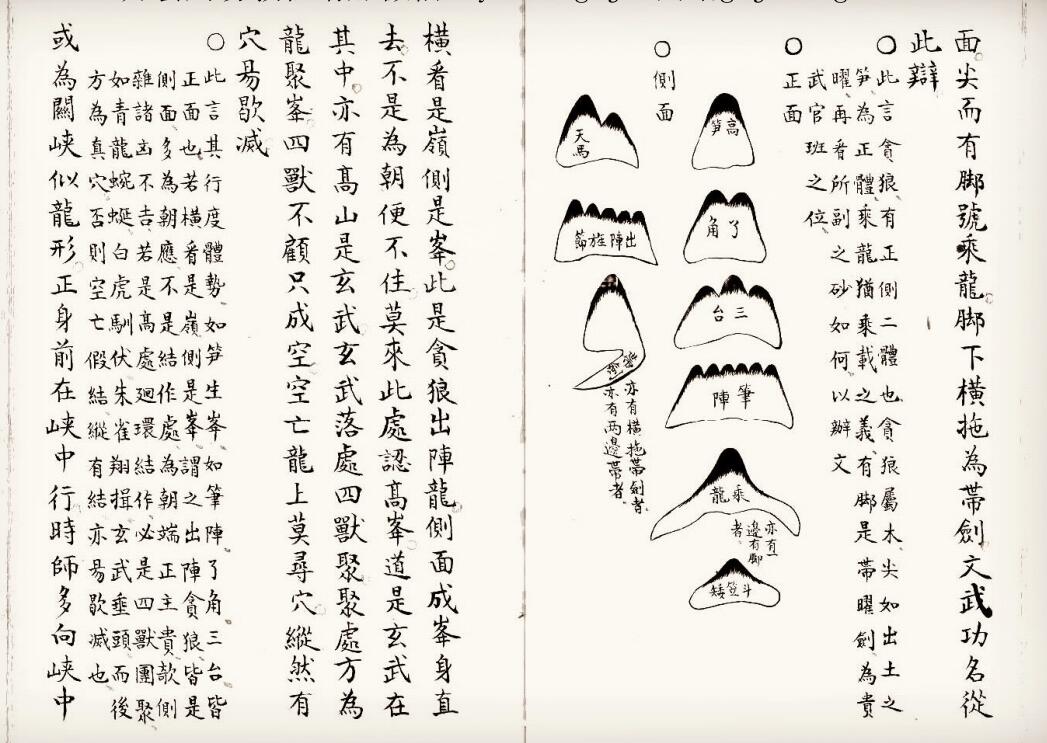 面尖而有脚號乘龍脚下橫拖為帶劍文武功名從
此辯
○此言貪狼有正側二體也貪狼屬木尖如出土之
笋為正體乘龍猶乘載之義有脚是帶曜劍為貴
曜再看所副之砂如何以辦文
武官班之位
○正面
高笋
了角
三台
筆陣
乘龍
亦有一
邊有脚
者
斗笠矮
○側面
天馬
出陣旌節
亦有橫拖帶劍者
亦有兩邊帶者
橫看是嶺側是峯此是貪狼出陣龍側面成峯身直
去不是為朝便不住莫來此處認高峯道是玄武在
其中亦有高山是玄武玄武落處四獸聚聚處方為
龍聚峯四獸不顧只成空空亡龍上莫尋穴縱然有
穴易歇滅
○此言其行度體勢如笋生峯如筆陣了角三台皆
正面也若橫看是嶺側是峯謂之出陣貪狼皆是
側面多為朝應不是結作處為朝端正主貴欹側
雜諸凶不吉若是高處廻環結作必是四獸團聚
如青龍蜿蜒白虎馴伏朱雀翔揖玄武垂頭而後
方為真穴否則空亡假結縱有結亦易歇滅也
或為關峽似龍形正身前在峽中行時師多向峽中